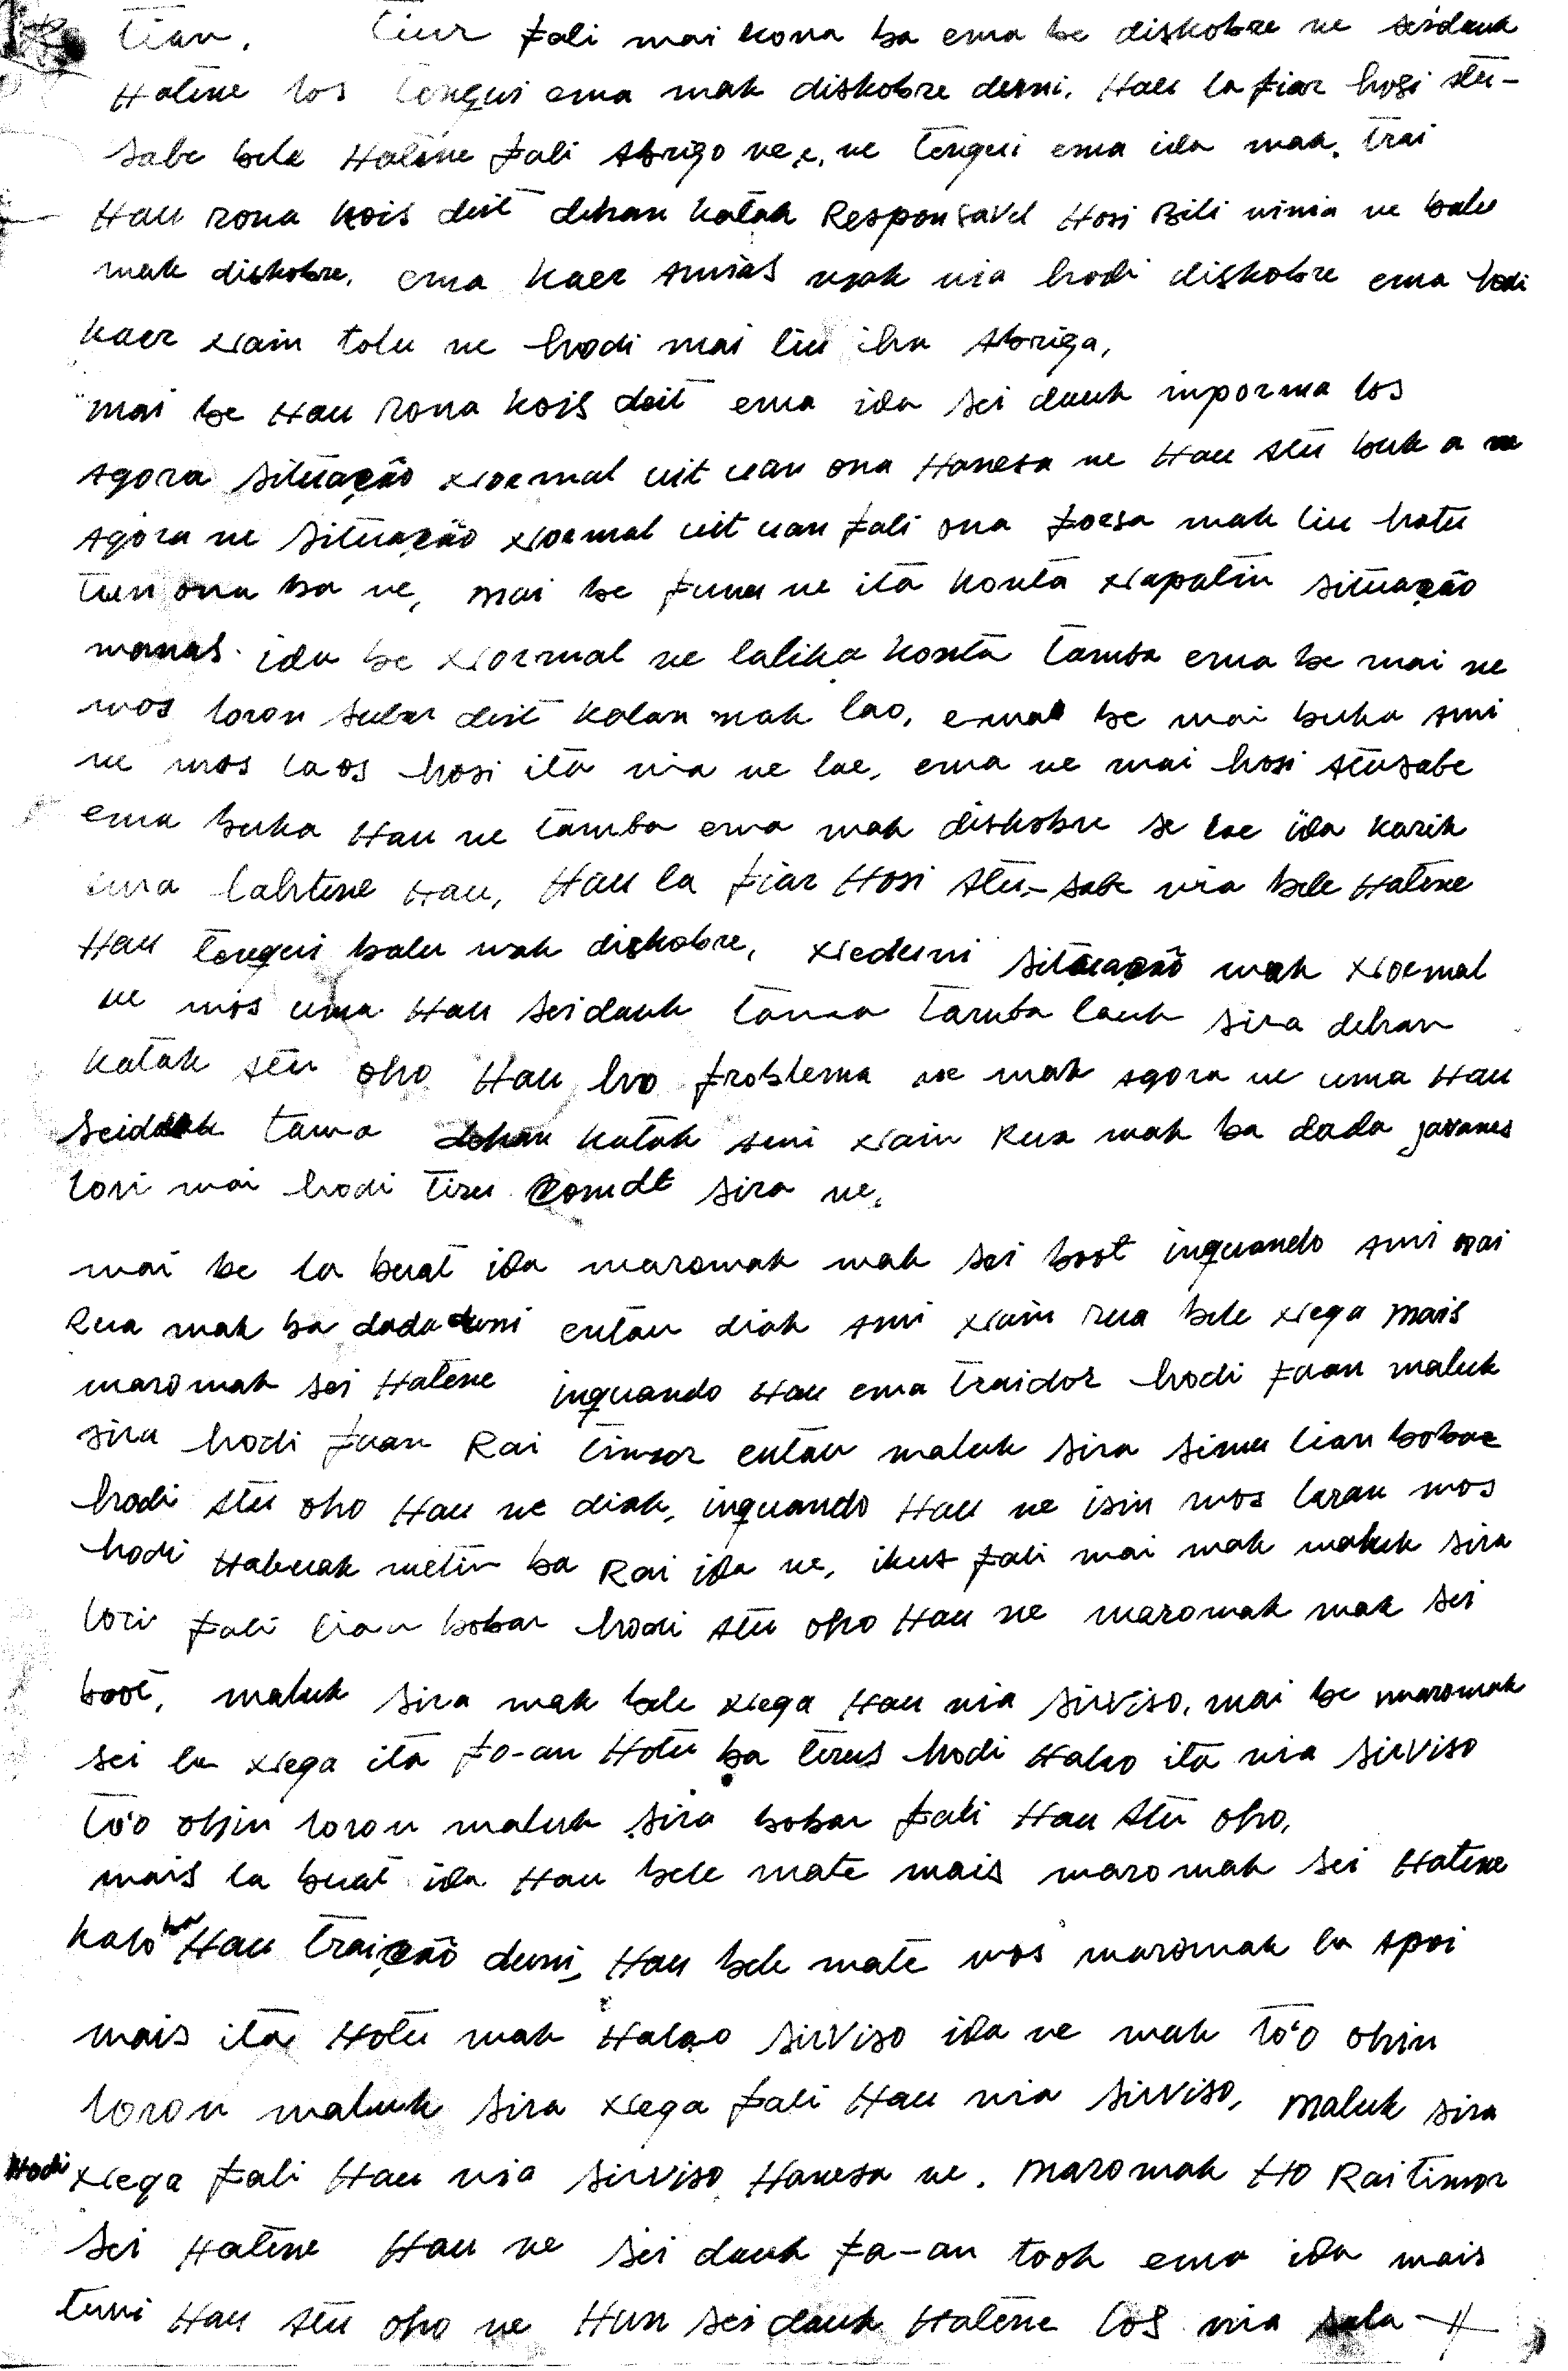 tian. tiur fali mai kona ba ema be diskobre ne seidauk
Hatene los tengui ema mak diskobre deuni. Hau la fiar hosi Atu-
sabe bele Hatene fali Abrigo ne e, ne tengui ema ida mak. trai
Hau rona kois deit dehan katak Responsavel Hosi Bili ninia ne balu
mak diskobre. ema kaer Amias mak nia hodi diskobre ema hodi
kaer Nain tolu ne hodi mai liu iha Abriga,
mai be Hau rona kois deit ema ida sei dauk inporma los
Agora situação Normal uit uan ona Hanesa ne Hau Atu buk a ne
Agora ne situação Normal uit uan fali ona forsa mak liu hatu
tun ona ba ne, mai be funu ne ita konta Napatin situação
manas. ida be Normal ne lalika konta tamba ema be mai ne
mos loron subar deit kalan mak lao, ema be mai buka Ami
ne mos laos hosi ita nia ne lae, ema ne mai hosi Atusabe
ema buka Hau ne tamba ema mak diskobre se lae ida karik
ema lahtene Hau, Hau la fiar Hosi Atu-sabe nia bele Hatene
Hau tengui balu mak diskobre, Nedeuni situação mak Normal
ne mos uma Hau seidauk tama tamba lauk sira dehan
katak Atu oho Hau ho problema ne mak Agora ne uma Hau
seidauk tama dehan katak Ami Nain Rua mak ba dada javanes
lori mai hodi tiru Comdt sira ne.
mai be la buat ida maromak mak sei boot inquando Ami Nai
Rua mak ba dada duni entau diak Ami Nain rua bele Nega mais
maromak sei Hatene inquando Hau ema traidor hodi faan maluk
sira hodi faan Rai timor entau maluk sira simu lian bobar
hodi Atu oho Hau ne diak, inquando Hau ne isin mos laran mos
hodi Habuak metin ba Rai ida ne, ikus fali mai mak maluk sira
lori fali lian bobar hodi Atu oho Hau ne maromak mak sei
boot, maluk sira mak bele Nega Hau nia sirviso. mai be maromak
sei la Nega ita fo-an Hotu ba terus hodi Halao ita nia sirviso
to'o ohin loron maluk sira bobar fali Hau Atu oho.
mais la buat ida Hau bele mate mais maromak sei Hatene
kalo ba Hau traição duni, Hau bele mate mos maromak la Apoi
mais ita Hotu mak Halao sirviso ida ne mak to'o ohin
loron maluk sira Nega fali Hau nia sirviso, maluk sira
Hodi Nega fali Hau nia sirviso Hanesa ne. maromak Ho Rai timor
sei Hatene Hau ne sei dauk fa-an took ema ida mais
tuni Hau Atu oho ne Hun sei dauk Hatene los nia sala